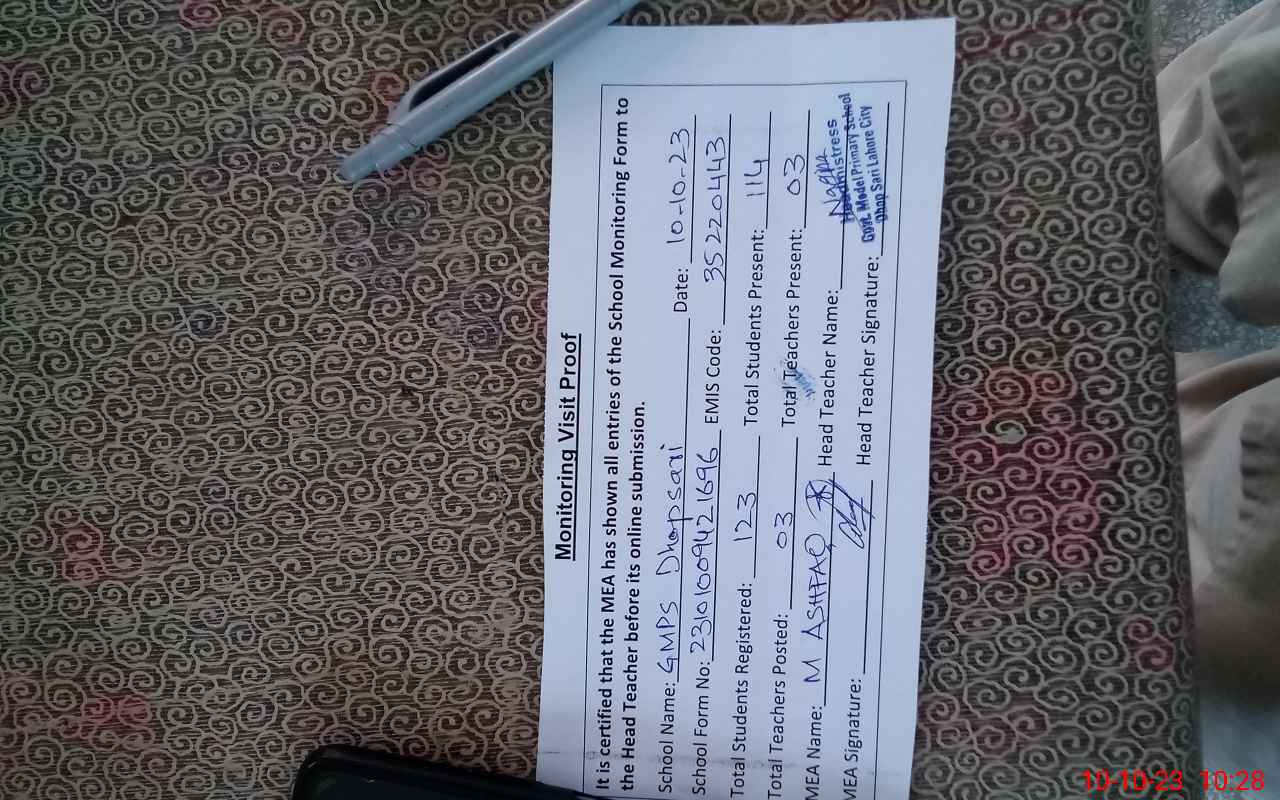 Monitoring Visit Proof
It is certified that the MEA has shown all entries of the School Monitoring Form to
the Head Teacher before its online submission.
School Name: GMPS Dhopsari Date: 10-10-23
School Form No: 23101009421696 EMIS Code: 35220443
Total Students Registered: 123 Total Students Present: 114
Total Teachers Posted: 03 Total Teachers Present: 03
MEA Name: M ASHFAQ Head Teacher Name:
Headmistress
Govt. Model Primary School
Dhop Sari Lahore City
MEA Signature: Head Teacher Signature:
10-10-23 10:28